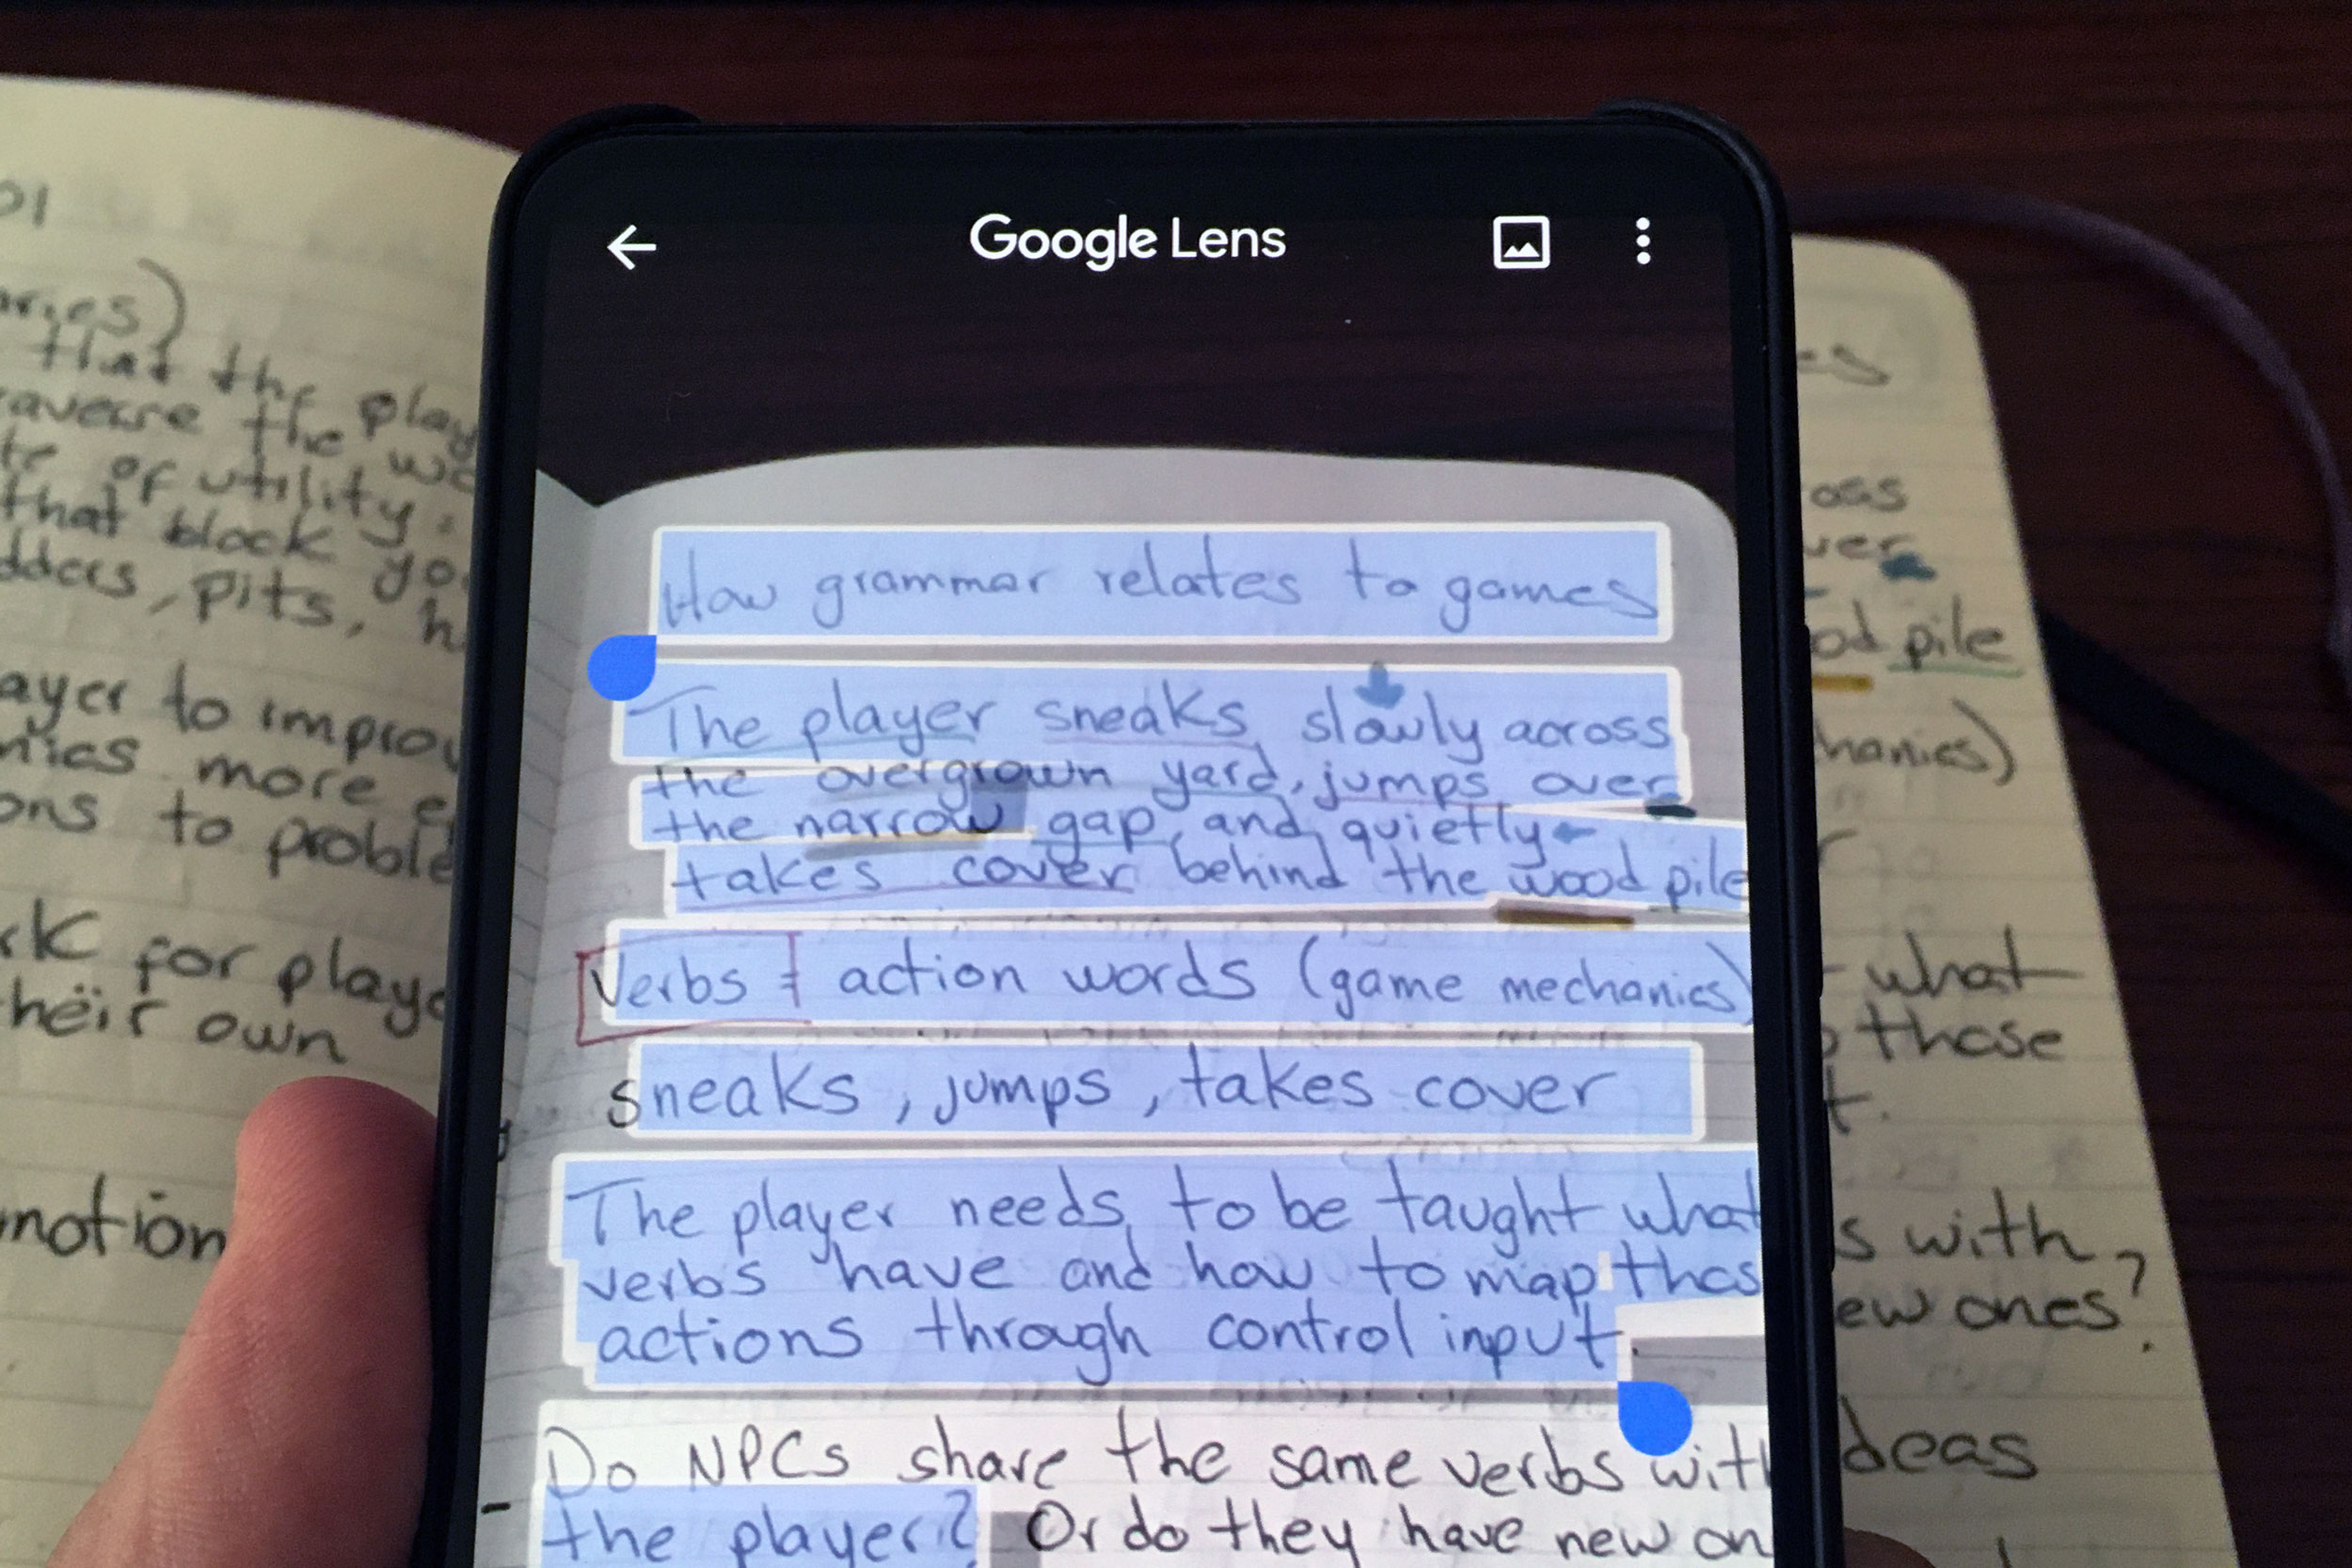 Google Lens
How grammar relates to games
The player sneaks slowly across
the overgrown yard, jumps over
the narrow gap, and quietly
takes cover behind the wood pile
Verbs = action words (game mechanics)
sneaks, jumps, takes cover
The player needs to be taught what
verbs have and how to map thos
actions through control input.
Do NPCs share the same verbs with
the player? Or do they have new on
01
aries)
that the play
averse the wo
te of utility.
that block yo
dders, pits, h
ayer to improv
nics more e
ons to proble
rk for playe
their own
motion
es
oss
ver
od pile
hanics)
what
those
t.
s with
ew ones?
deas